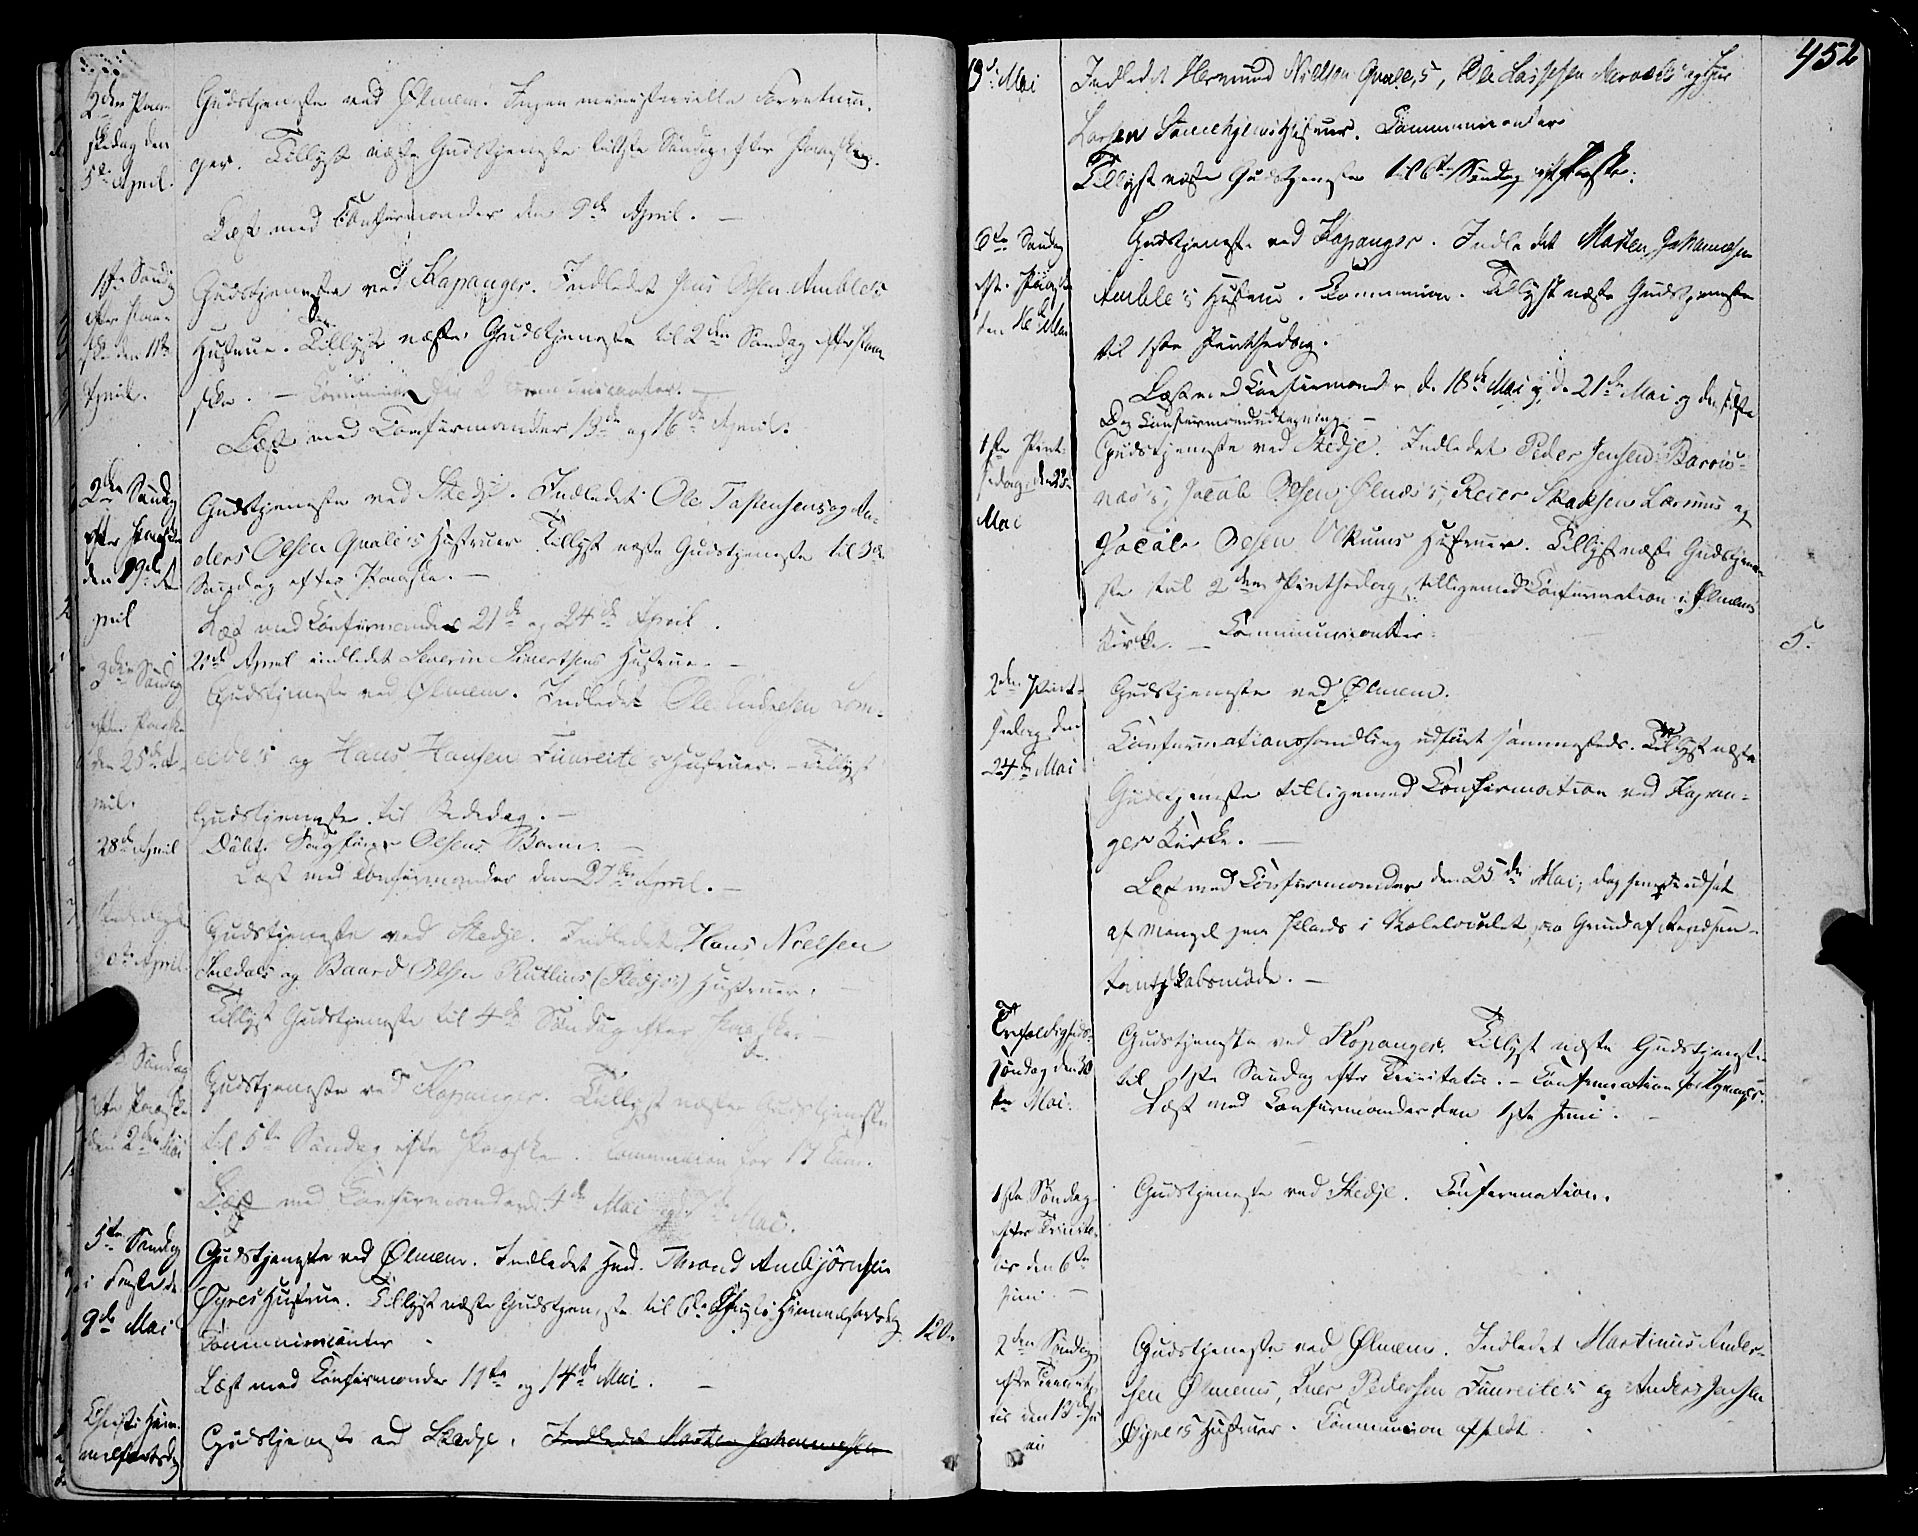 2den Paa-
skedag den
5te April.
Gudstjeneste ved Ølmem. Ingen ministerielle Forretnin-
ger. Tillyst næste Gudstjeneste første Søndag efter Paaske.
Læst med Confirmander den 9de April. —
1ste Søndag
efter Paa-
ske den 11te
April.
Gudstjeneste ved Kapanger. Indledet Jens Olsen Ambles
Hustrue. Tillyst næste Gudstjeneste til 2den Søndag efter Paa-
ske. — Communion for 2 Communicanter. —
Læst med Confirmander 13de og 16de April.
2den Søndag
efter Paaske
den 19de A-
pril
Gudstjeneste ved Stedje. Indledet Ole Tostensens og An-
ders Olsen Qvale's Hustruer. Tillyst næste Gudstjeneste til 3die
Søndag efter Paaske. —
Læst med Confirmander 21de og 24de April.
21de April indledet Severin Sivertsens Hustrue. —
3die Søndag
efter Paaske
den 25de A-
pril.
Gudstjeneste ved Ølmem. Indledet Ole Andresen Lom-
elde's og Hans Hansen Fuureite's Hustruer. — Tillyst
Gudstjeneste til Bededag. —
28de April
Døbt Olsens Barn. —
Læst med Confirmander den 27de April. —
30te April
Gudstjeneste ved Stedje. Indledet Hans Nielsen
og Baard Olsen Rutlins (Stedjes) Hustruer. —
Tillyst Gudstjeneste til 4de Søndag efter Paaske. —
Søndag
efter Paaske
den 2den Mai
Gudstjeneste ved Kapanger. Tillyst næste Gudstjeneste
til 5te Søndag efter Paaske. Communion for 17 Com.
Læst med Confirmander 4de Mai og Mai.
5te Søndag
i Faste den
9de Mai
Gudstjeneste ved Ølmem. Indledet Trond Anbjørnsen
Øyres Hustrue. Tillyst næste Gudstjeneste til Christi Himmelfartsdag.
120.
Communicanter
Læst med Confirmander 11te og 14de Mai. —
Christi Him-
melfartsdag
Gudstjeneste ved Stedje. Indledet Morten Johannessen
452
13de Mai
Indledet Hermund Nielsen Qvale's, Ole Lassesen og
Larsen Hustruer. Communicanter
Tillyst næste Gudstjeneste til 6te Søndag eft. Paaske.
6te Søndag
eft. Paaske
den 16de Mai
Gudstjeneste ved Kapanger. Indledet Morten Johannesen
Amble's Hustrue. Communion. Tillyst næste Gudstjeneste
til 1ste Pintsedag.
Læst med Confirmander d. 18de Mai og d. 21de Mai og den sidste
Dag Confirmandudtegning. —
1ste Pint-
sedag den 23de
Mai
Gudstjeneste ved Stedje. Indledet Peder Jensen Barsnæs-
næs's, Jacob Olsen Ølnæs's, Reier Skaksen Lærums og
Jacob Olsen Ulkums Hustruer. Tillyst næste Gudstjene-
ste til 2den Pintsedag, tilligemed Confirmation i Ølmems
Kirke. — Communicanter:
5.
2den Pint-
sedag den
24de Mai
Gudstjeneste ved Ølmem.
Confirmationshandling udført sammesteds. Tillyst næste
Gudstjeneste tilligemed Confirmation ved Kapan-
ger Kirke. —
Læst med Confirmander den 25de Mai, dog udsat
af Mangel paa Plads i Skolelocalet paa Grund af Repræsen-
tantskabsmøde. —
Trefoldigheds-
Søndag den 30
te Mai.
Gudstjeneste ved Kapanger. Tillyst næste Gudstjeneste
til 1ste Søndag efter Trinitatis. — Confirmation for Kapanger.
Læst med Confirmander den 1ste Juni. —
1ste Søndag
efter Trinita-
tis den 6te
Juni. —
Gudstjeneste ved Stedje. Confirmation.
2den Søndag
efter Trinita-
tis den 13de Ju-
ni
Gudstjeneste ved Ølmem. Indledet Martinus Ander-
sen Ølmems, Iver Pedersen Fuureite's og Anders Jensen
Øyre's Hustruer. Communion afholdt.